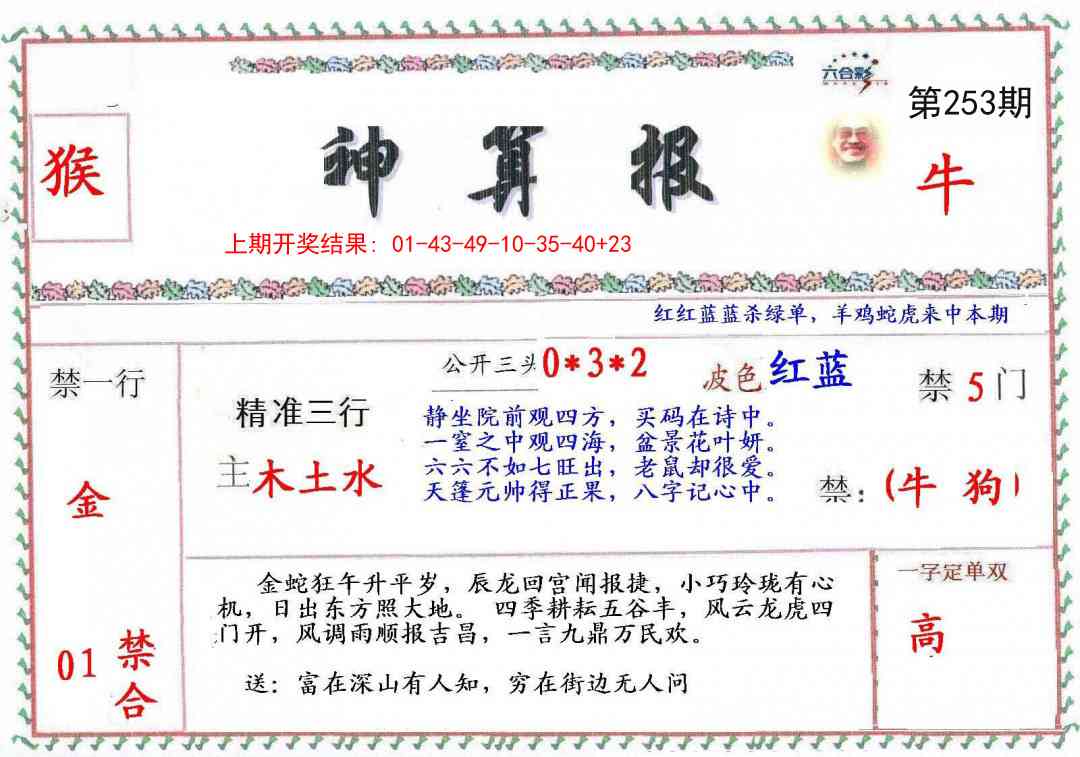 六合彩
第253期
猴
神算报
牛
上期开奖结果：01-43-49-10-35-40+23
红红蓝蓝杀绿单，羊鸡蛇虎来中本期
禁一行
公开三头0*3*2
波色红蓝
禁5门
精准三行
主木土水
静坐院前观四方，买码在诗中。
一窒之中观四海，盆景花叶妍。
六六不如七旺出，老鼠却很爱。
天篷元帅得正果，八字记心中。
禁：(牛 狗)
金
01禁合
金蛇狂午升平岁，辰龙回宫闻报捷，小巧玲珑有心
机，日出东方照大地。 四季耕耘五谷丰，风云龙虎四
门开，风调雨顺报吉昌，一言九鼎万民欢。
送：富在深山有人知，穷在街边无人问
一字定单双
高